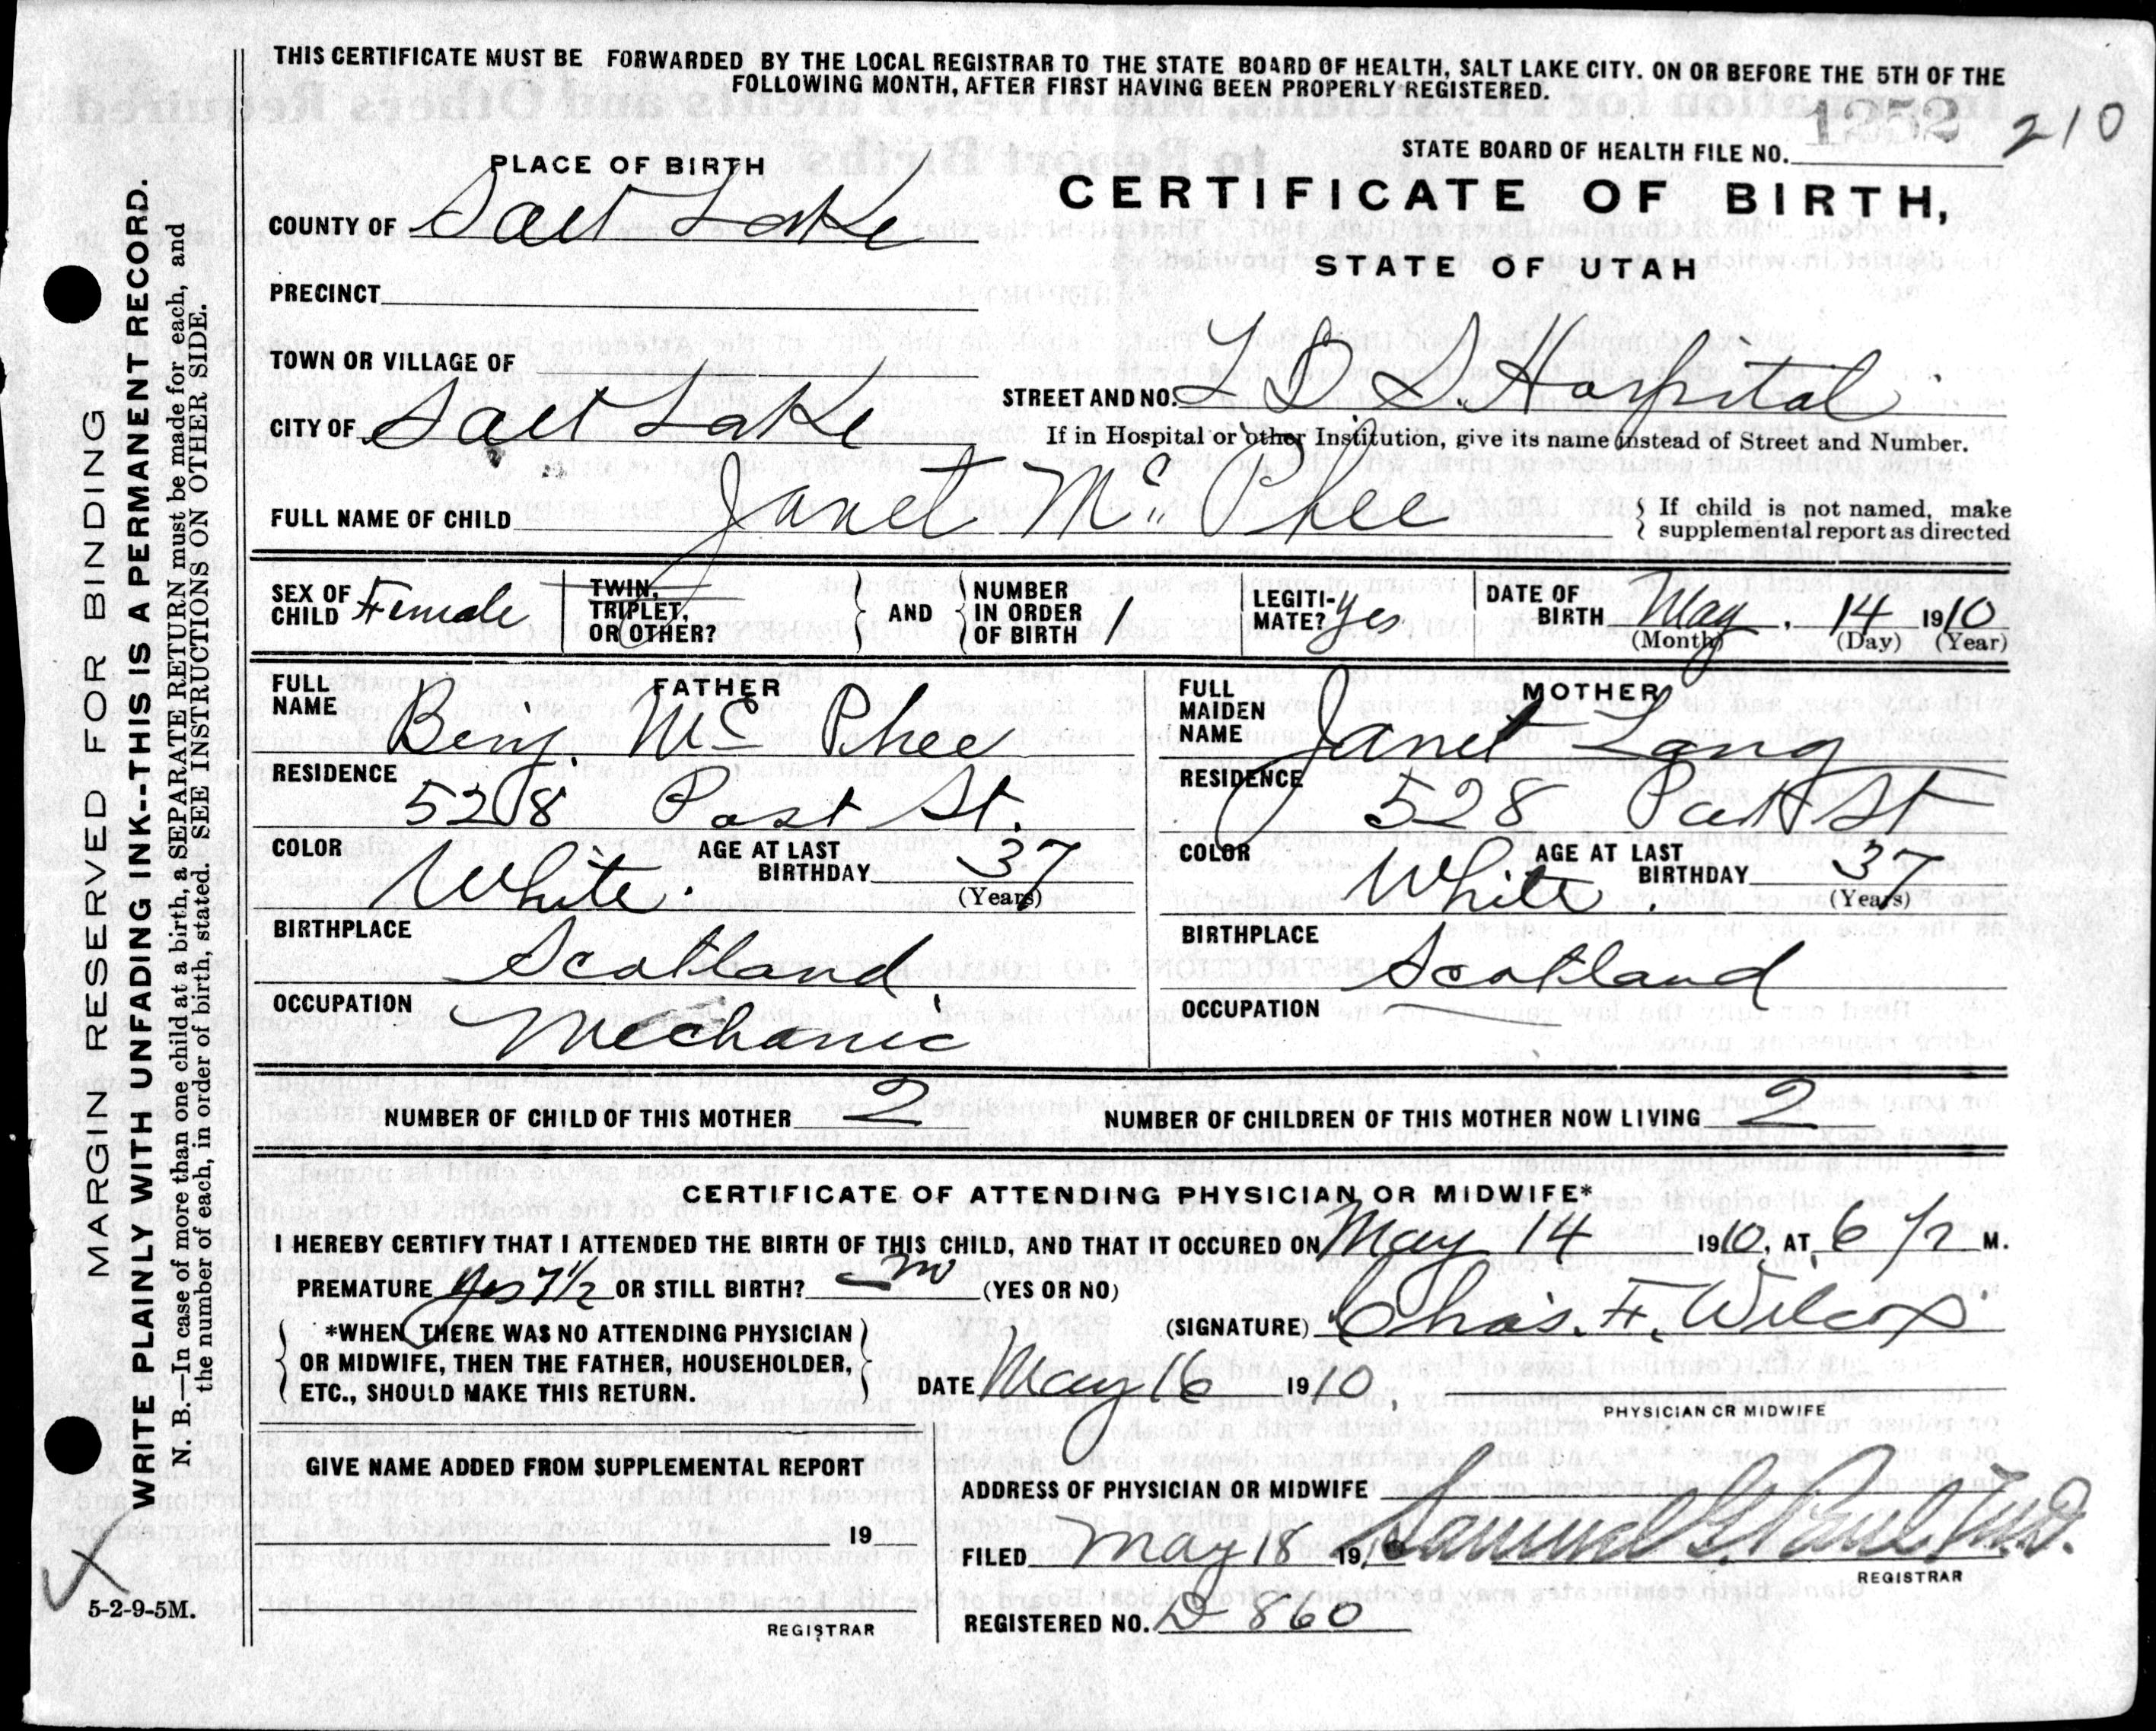 THIS CERTIFICATE MUST BE FORWARDED BY THE LOCAL REGISTRAR TO THE STATE BOARD OF HEALTH, SALT LAKE CITY. ON OR BEFORE THE 5TH OF THE
FOLLOWING MONTH, AFTER FIRST HAVING BEEN PROPERLY REGISTERED.
1252 210
STATE BOARD OF HEALTH FILE NO.
PLACE OF BIRTH
CERTIFICATE OF BIRTH,
COUNTY OF Salt Lake
STATE OF UTAH
PRECINCT
TOWN OR VILLAGE OF
STREET AND NO. L D S Hospital
CITY OF Salt Lake
If in Hospital or other Institution, give its name instead of Street and Number.
FULL NAME OF CHILD Janet Mc Phee
{ If child is not named, make
{ supplemental report as directed
SEX OF CHILD Female
TWIN, TRIPLET, OR OTHER?
AND { NUMBER IN ORDER OF BIRTH 1
LEGITIMATE? Yes
DATE OF BIRTH May 14 1910
(Month) (Day) (Year)
FATHER
FULL NAME Benj. Mc Phee
RESIDENCE 528 Post St.
COLOR White. AGE AT LAST BIRTHDAY 37
(Years)
BIRTHPLACE Scotland
OCCUPATION Mechanic
MOTHER
FULL MAIDEN NAME Janet Lang
RESIDENCE 528 St
COLOR White. AGE AT LAST BIRTHDAY 37
(Years)
BIRTHPLACE Scotland
OCCUPATION
NUMBER OF CHILD OF THIS MOTHER 2
NUMBER OF CHILDREN OF THIS MOTHER NOW LIVING 2
CERTIFICATE OF ATTENDING PHYSICIAN OR MIDWIFE*
I HEREBY CERTIFY THAT I ATTENDED THE BIRTH OF THIS CHILD, AND THAT IT OCCURED ON May 14 1910, AT 6 1/2 M.
PREMATURE Yes 7 1/2 OR STILL BIRTH? no (YES OR NO)
(SIGNATURE) Chas. F. Wilcox
*WHEN THERE WAS NO ATTENDING PHYSICIAN
OR MIDWIFE, THEN THE FATHER, HOUSEHOLDER,
ETC., SHOULD MAKE THIS RETURN.
DATE May 16 1910
PHYSICIAN OR MIDWIFE
GIVE NAME ADDED FROM SUPPLEMENTAL REPORT
19
REGISTRAR
ADDRESS OF PHYSICIAN OR MIDWIFE
FILED May 18 1910 Samuel G. Paul, M.D.
REGISTRAR
REGISTERED NO. D 860
MARGIN RESERVED FOR BINDING
WRITE PLAINLY WITH UNFADING INK--THIS IS A PERMANENT RECORD.
N. B.—In case of more than one child at a birth, a SEPARATE RETURN must be made for each, and
the number of each, in order of birth, stated. SEE INSTRUCTIONS ON OTHER SIDE.
5-2-9-5M.